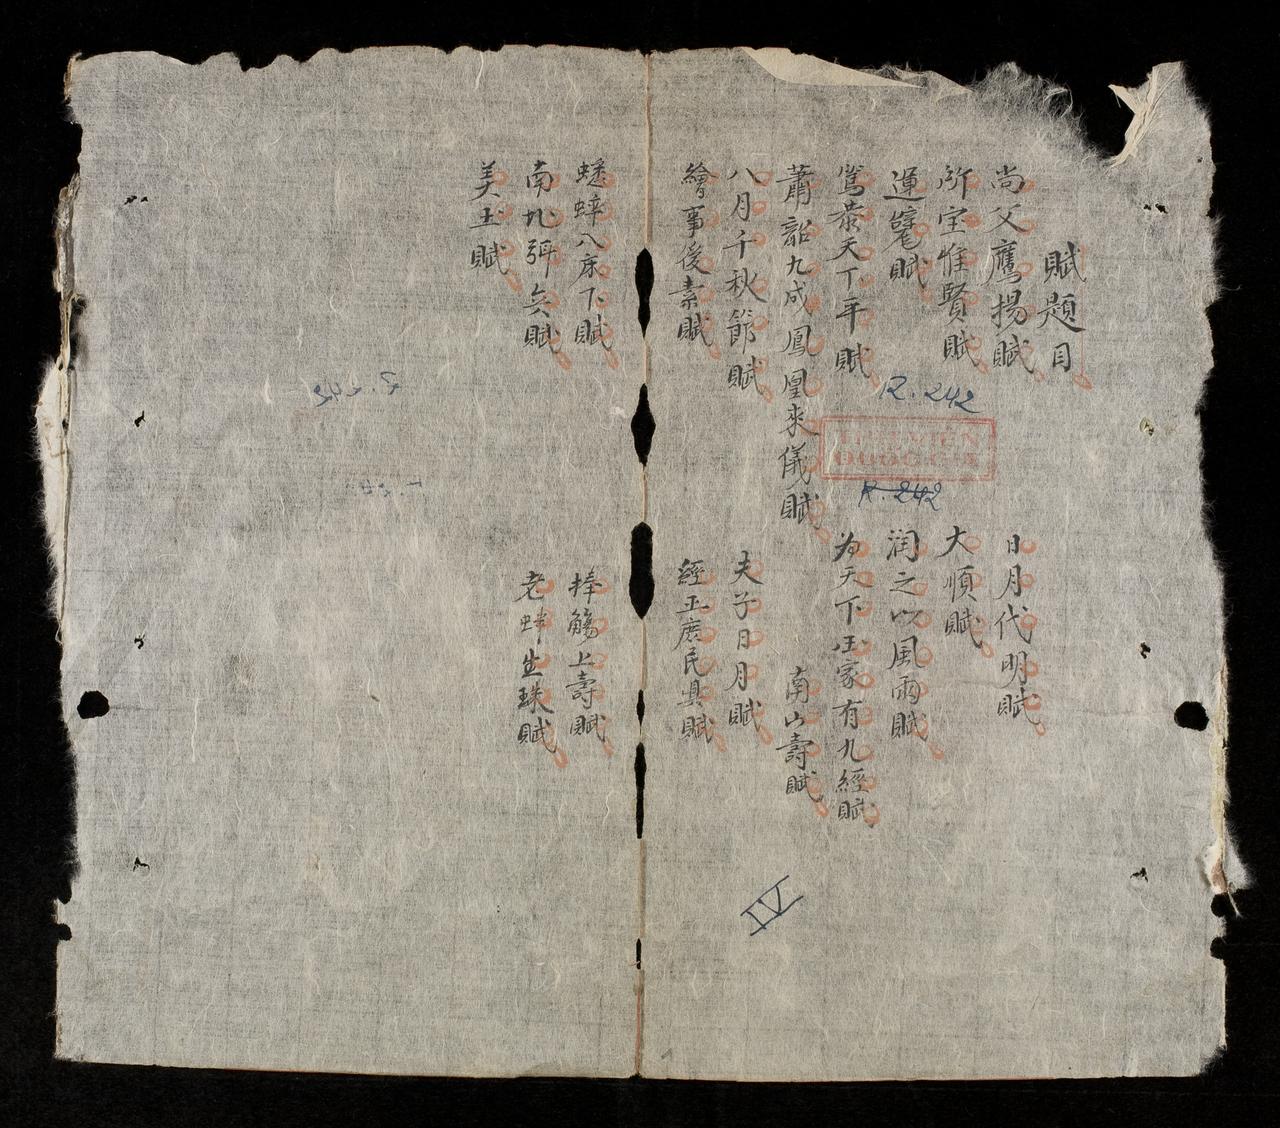 賦題目
尚父鷹揚賦
日月代明賦
所宝惟賢賦
大順賦
運甓賦
潤之以風雨賦
篤恭天下平賦
為天下国家有九經賦
蕭韶九成鳳凰來儀賦
南山壽賦
八月千秋節賦
夫子日月賦
繪事後素賦
經正庶民興賦
蟋蟀入床下賦
捧觴上壽賦
南北弭兵賦
老蚌生珠賦
美玉賦
R. 242
THƯ VIỆN
QUỐC GIA
R. 242
IV